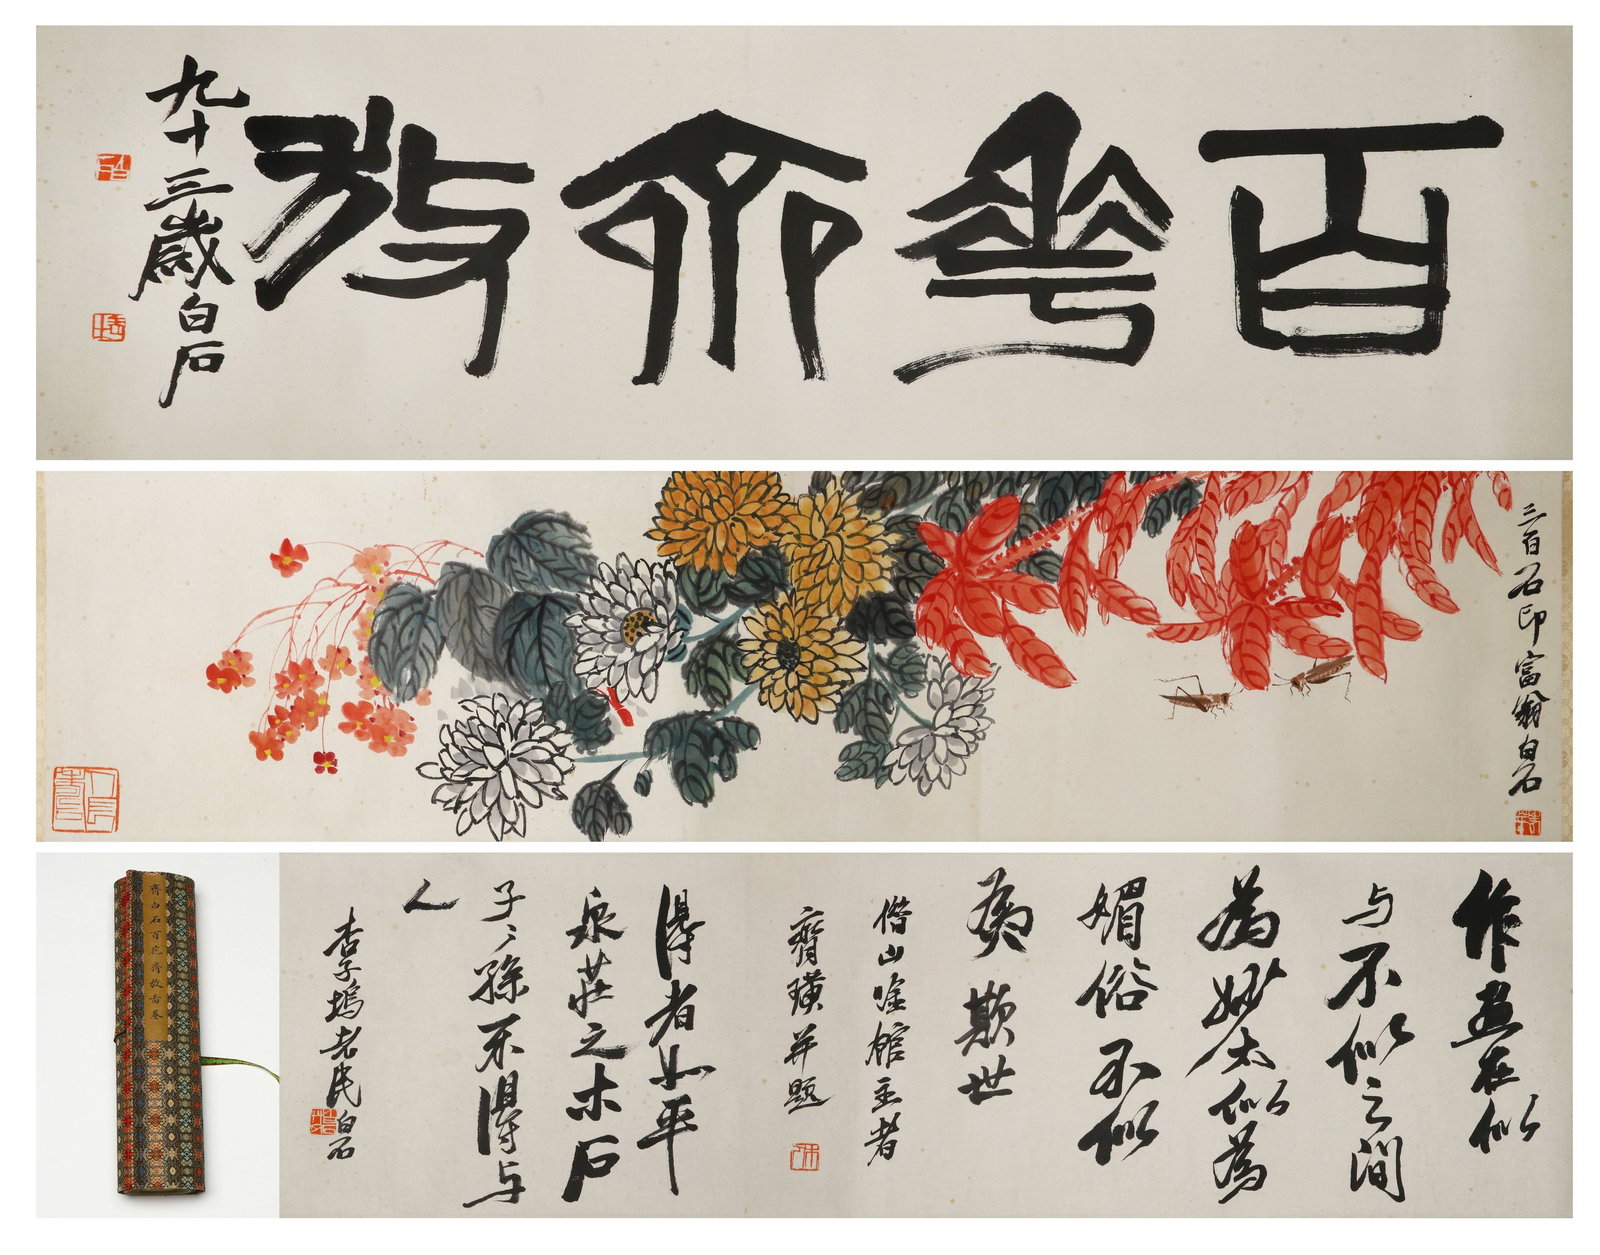 百花齊放
九十三歲白石
三百石印富翁白石
作畫在似
与不似之間
為妙太似為
媚俗不似
為欺世
借山唫館主者
齊璜并題
得者如平
泉莊之木石
子〻孫不得与
人
杏子塢老民白石
齊白石百花齊放書卷